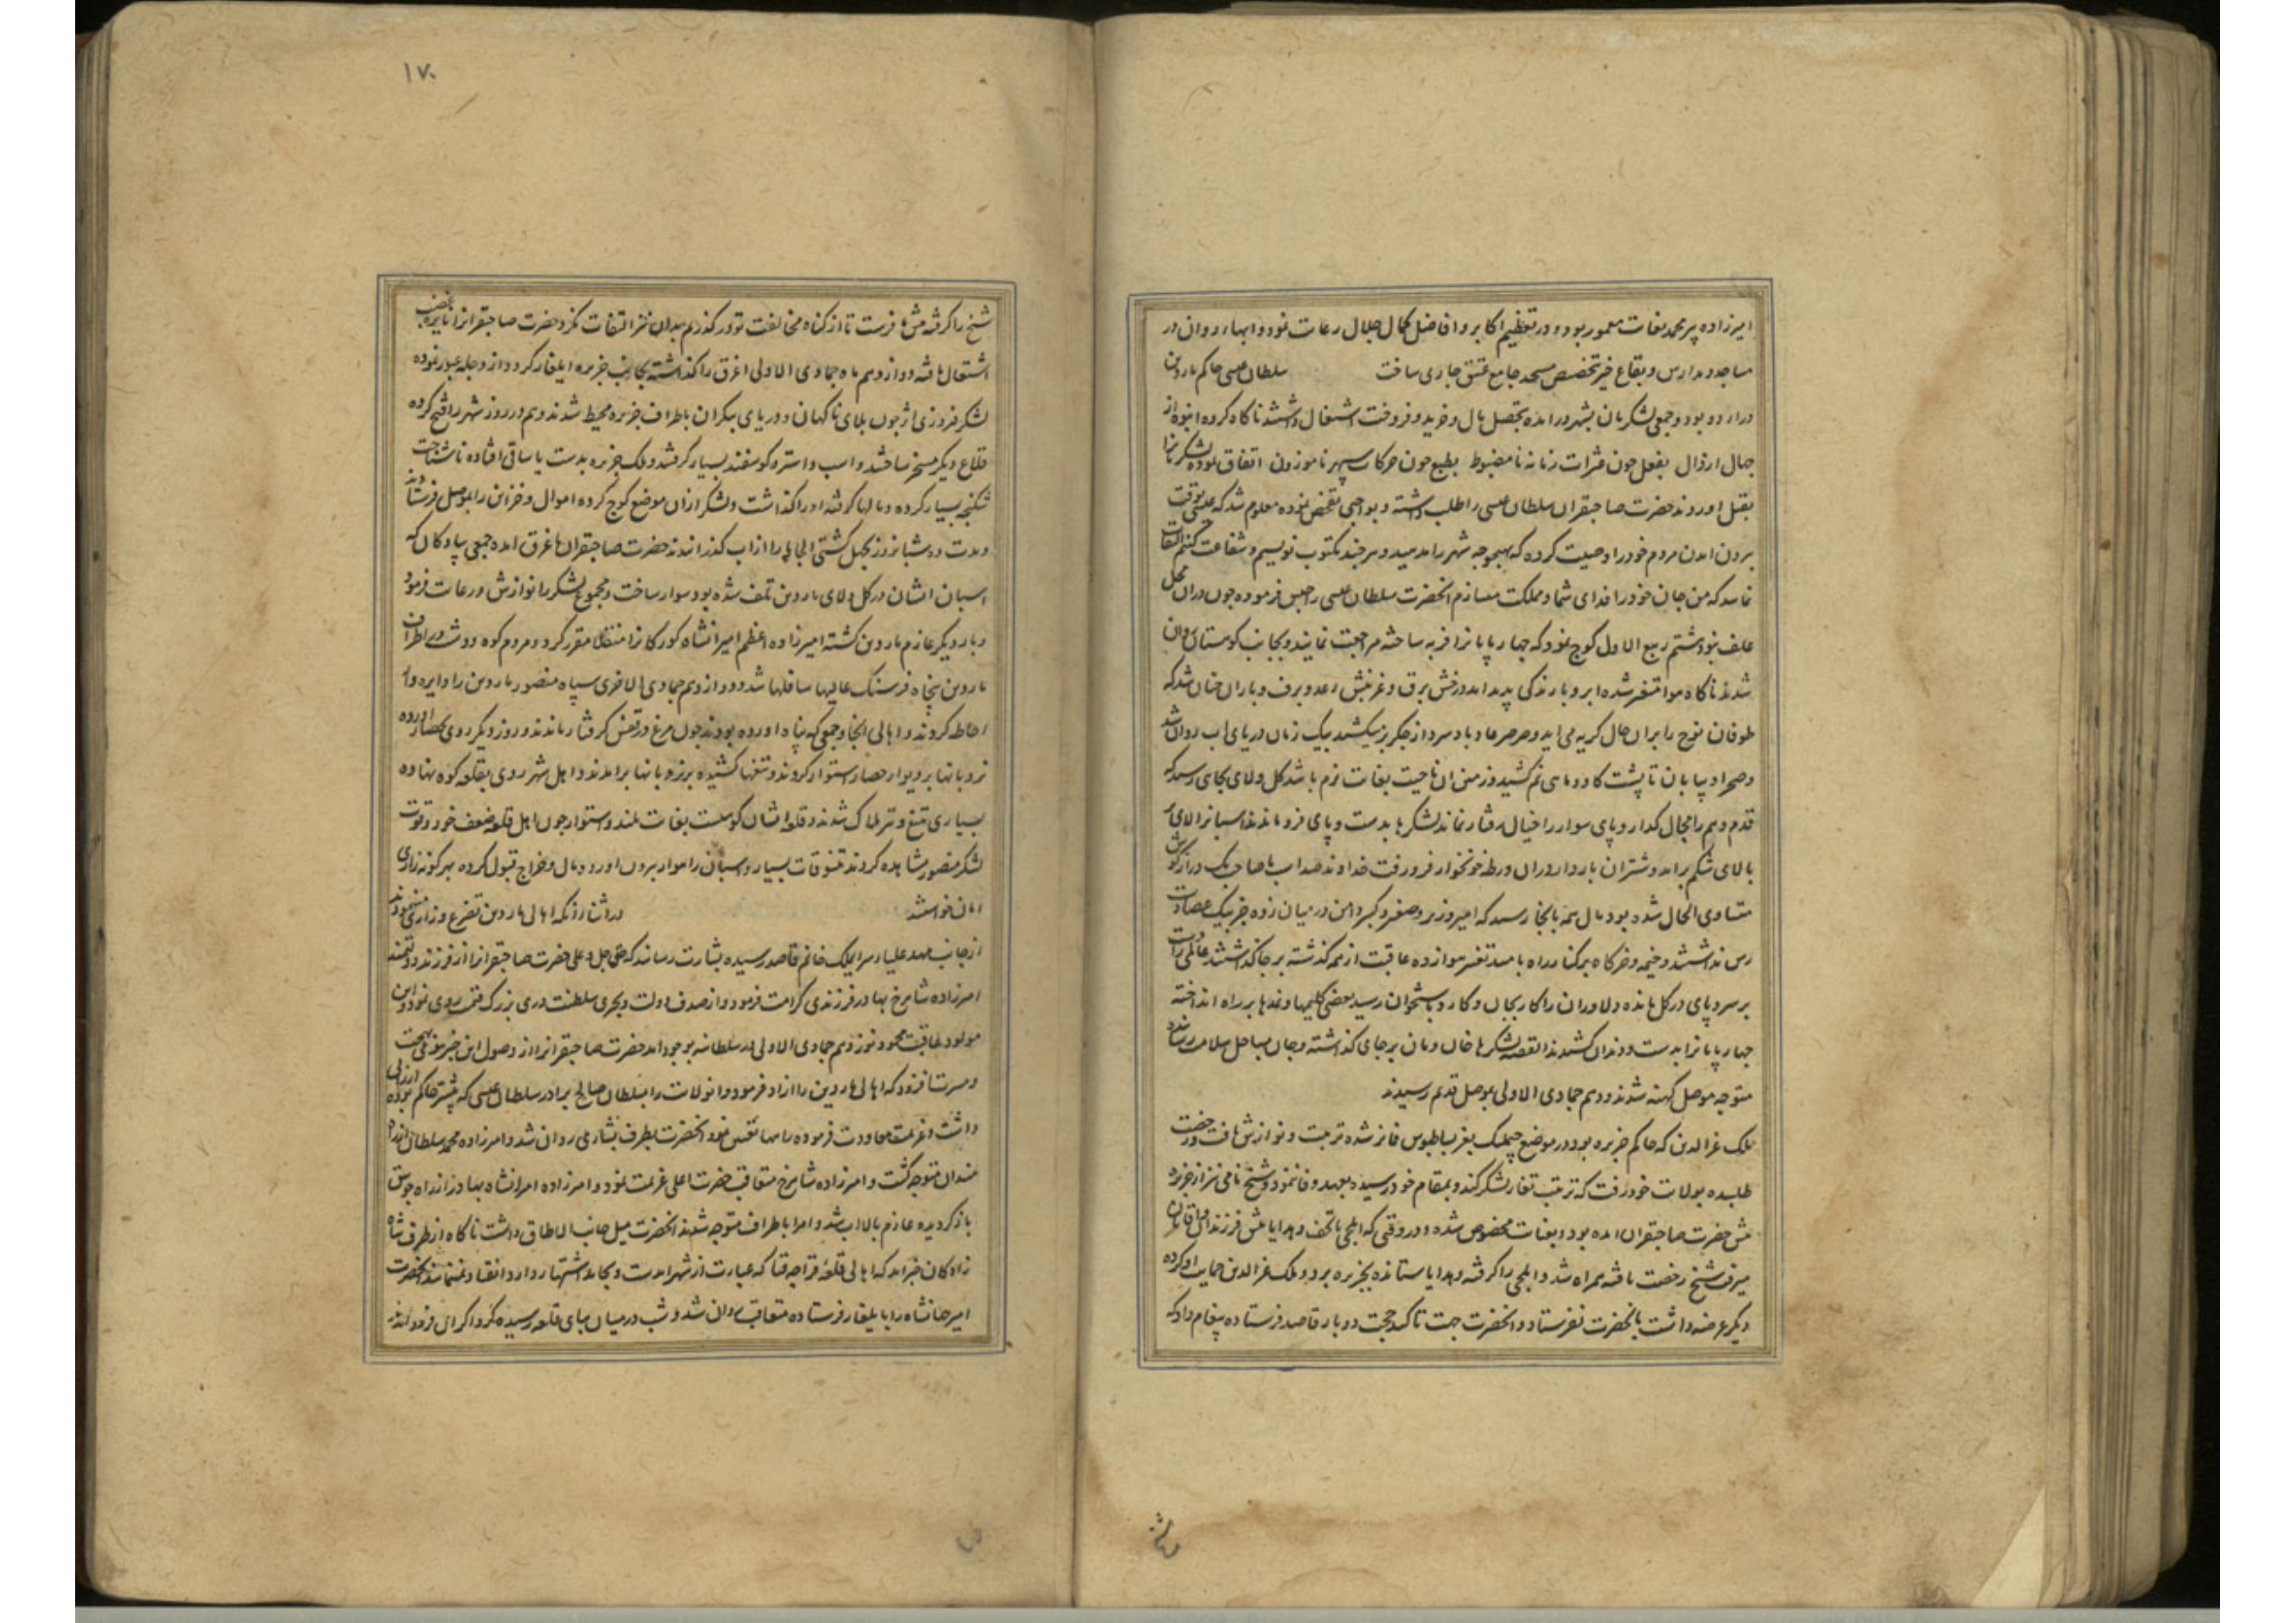 امیرزاده پیر محمد بغایت معمور بود و در تعظیم اکابر و افاضل کمال جلال رعایت نمود و ابهاء روان در
مساجد و مدارس و بقاع خیر تخصیص مسجد جامع عتیق جاری ساخت سلطان عیسی حاکم ماردین
در اردو بود و جمعی لشکریان بشهر درامده بتحصیل مال و خرید و فروخت اشتغال داشتند ناکاه کروه انبوه از
جهال ارذال بفعل چون عثرات زمانه نامضبوط بطبع چون حرکات سپهر ناموزون اتفاق نموده لشکریانرا
بقتل اوردند حضرت صاحبقران سلطان عیسی را طلب داشته و بواجبی تفحص نموده معلوم شد که عیسی بوقت
برون امدن مردم خود را وصیت کرده که بهیچوجه شهر را مدهید و هر چند مکتوب نویسم و شفاعت کنم التفات
نمایید که من جان خود را فدای شما و مملکت میسازم انحضرت سلطان عیسی را حبس فرموده چون دران محل
علف نبود هشتم ربیع الاول کوچ نمود که چهارپایانرا فربه ساخته مراجعت نمایند و بجانب کوهستان روان
شدند ناکاه هوا متغیر شده ابر و بارندکی پدید امد درخش برق و غرنبش رعد و برف و باران چنان شد که
طوفان نوح را بران حال کریه می اید و صرصر عاد باد سرد از جکر بر میکشید بیک زمان دریای اب روان شد
و صحرا و بیابان تا پشت کاو و ماهی نم کشید و زمین ان ناحیت بغایت نرم باشد کل و لای بجای رسید که
قدم وهم را مجال کدار و پای سوار را خیال رفتار نماند لشکرها بدست و پای فرو ماندند اسبانرا لای از
بالای شکم برامد و شتران باردار دران ورطه خونخوار فرو رفت خداوند صد اسب با صاحب یک درازکوش
متساوی الحال شده بود مال همه بانجا رسید که امیر و وزیر و صغیر و کبیر دامن در میان زده جز بیک عصا دست
رس نداشتند و خیمه و خرکاه بر کنار راه بامید تغیر هوا زده عاقبت از همه کذشته بر جا کذاشتند عالمی را دست
بر سر و پای در کل مانده دلاوران را کار بجان و کارد باستخوان رسید بعضی کلیمها و نمدها بر راه انداخته
چهارپایانرا بدست و دندان کشیدند القصه لشکرها خان و مان بر جای کذاشته و جان بساحل سلامت رسانید
متوجه موصل کهنه شدند و دهم جمادی الاولی بموصل قدیم رسیدند
ملک عزالدین که حاکم جزیره بود در موضع چیملیک بعز بساطبوس فایز شده تربیت و نوازش یافت و رخصت
طلبیده بولایت خود رفت که ترتیب تغار لشکر کند و بمقام خود رسیده بعهد وفا ننمود و شیخ نامی نیز از جزیره
پیش حضرت صاحبقران امده بود و بغایت مخصوص شده و در وقتی که ایلچی با تحف و هدایا پیش فرزندان و اقایان
میرفت شیخ رخصت یافته همراه شد و ایلچی را کرفته و هدایا ستانده بجزیره برد و ملک عزالدین حمایت او کرده
دیکر عرضه داشت بانحضرت نفرستاد و انحضرت جهت تاکید حجت دو بار قاصد فرستاده پیغام داد که
۱۷۰
شیخ را کرفته پیش ما فرست تا از کناه مخالفت تو درکذریم بدان نیز التفات نکرد حضرت صاحبقرانرا نایره غضب
اشتعال یافته دوازدهم ماه جمادی الاولی اغرق را کذاشته بجانب جزیره ایلغار کرد و از دجله عبور نموده
لشکر فیروزی اثر چون بلای ناکهان و دریای بیکران باطراف جزیره محیط شدند و هم در روز شهر را فتح کرده
قلاع دیکر مسخر ساختند و اسب و استر و کوسفند بسیار کرفتند و ملک جزیره بدست یاساقی افتاده ناشناخت
شکنجه بسیار کرده و مالها کرفته او را کذاشت و لشکر ازان موضع کوچ کرده اموال و خزاین را بموصل فرستادند
و مدت ده شبانروز بچهل کشتی الجای را از اب کذرانیدند حضرت صاحبقران باغرق امده جمعی پیادکان که
اسبان ایشان در کل و لای ماردین تلف شده بود سوار ساخت و مجموع لشکر را نوازش و رعایت فرمود
و بار دیکر عازم ماردین کشته امیرزاده اعظم امیرانشاه کورکانرا منقلا مقرر کرد و مردم کوه و دشت در اطراف
ماردین پنجاه فرسنک عالیها سافلها شد و دوازدهم جمادی الاخری سپاه منصور ماردین را دایره وار
احاطه کردند و اهالی انجا و جمعی که پناه اورده بودند چون مرغ در قفس کرفتار ماندند و روز دیکر روی بحصار اورده
نردبانها بر دیوار حصار استوار کردند و تیغها کشیده بر نردبانها برامدند و اهل شهر روی بقلعه کوه نهاده
بسیاری بتیغ و تیر هلاک شدند و قلعه ایشان کوهیست بغایت بلند و استوار چون اهل قلعه ضعف خود و قوت
لشکر منصور مشاهده کردند تنسوقات بسیار و اسبان راهوار برون اورد و مال و خراج قبول کرده بهر کونه زاری
امان خواستند در اثناء انکه اهالی ماردین تضرع و زاری مینمودند
از جانب مهد علیا سرایملک خانم قاصد رسیده بشارت رسانید که حق جل و علی حضرت صاحبقرانرا از فرزند دولتمند
امیرزاده شاهرخ بهادر فرزندی کرامت فرمود و از صدف دولت و بحری سلطنت دری بزرک قیمت روی نمود و این
مولود عاقبت محمود نوزدهم جمادی الاولی در سلطانیه بوجود امد حضرت صاحبقرانرا از وصول این خبر نوعی بهجت
و مسرت افزود که اهالی ماردین را ازاد فرمود و انولایت را بسلطان صالح برادر سلطان عیسی که پیشتر حاکم بوده ارزانی
داشت و عزیمت معاودت فرموده بامها بنفس خود انحضرت بطرف بشارمی روان شد و امیرزاده محمد سلطان براه
میدان متوجه کشت و امیرزاده شاهرخ متعاقب حضرت اعلی عزیمت نمود و امیرزاده امیرانشاه بهادر از راه جوسق
باز کردیده عازم بالااب شد و امرا باطراف متوجه شدند انحضرت میل جانب الاطاق داشت ناکاه از طرف شاه
زادکان خبر امد که اهالی قلعه قراجه قیا که عبارت از شهر امدست و بحامد اشتهار دارد انقیاد نمینمایند انحضرت
امیر جهانشاه را بایلغار فرستاده متعاقب روان شد و شب در میان بپای قلعه رسیده کرداکرد ان فرود امدند